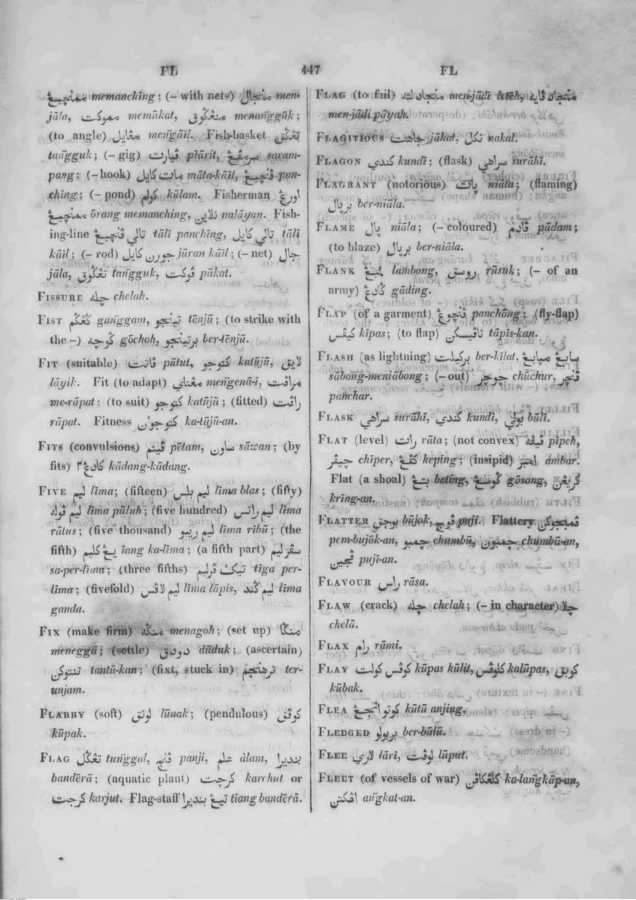 FL 447 FL
ممنچيڠ memanchīng; (– with nets) منجال men-
jāla, مموکت memūkat, منڠڬوق menanggūk;
(to angle) مڠايل mengāil. Fish-basket تڠڬق
tangguk; (– gig) ڤيارت sarampang
pang: (– hook) مات کايل māta-kāil, ڤنچيڠ pan-
ching; (– pond) کولم kūlam. Fisherman اورڠ
ممنچيڠ ōrang memanching, نلاين nalāyan. Fish-
ing-line تالي ڤنچيڠ tāli panching, تالي کايل tāli
kāil; (– rod) جورن کايل jūran kāil; (– net) جال
jāla, تڠڬوق tangguk, ڤوکت pūkat.
FISSURE چله chelah.
FIST ڬڠڬم ganggam, تينجو tēnjū; (to strike with
the –) ڬوچه gōchoh, برتينجو ber-tēnjū.
FIT (suitable) ڤاتت pātut, کتوجو katūjū, لايق
lāyik. Fit (to adapt) مڠناي mengenā-i, مراڤت
me-rāpat: (to suit) کتوجو katūjū; (fitted) راڤت
rāpat. Fitness کتوجون ka-tūjū-an.
FITS (convulsions) ڤيتم pētam, ساون sāwan; (by
fits) کادڠ٢ kādang-kādang.
FIVE ليم līma; (fifteen) ليم بلس līma blas; (fifty)
ليم ڤوله līma pūluh; (five hundred) ليم راتس līma
rātus; (five thousand) ليم ريبو līma rību; (the
fifth) يڠ کليم iang ka-līma; (a fifth part) سڤرليم
sa-per-līma; (three fifths) تيڬ ڤرليم tīga per-
līma; (fivefold) ليم لاڤس līma lāpis, ليم ڬند līma
ganda.
FIX (make firm) منڬه menagoh; (set up)
meneggā; (settle) دودق dūduk; (ascertain)
تنتوکن tantū-kan; (fixt, stuck in) ترهنجم ter-
unjam.
FLABBY (soft) لونق lūnak; (pendulous) کوڤق
kūpak.
FLAG تڠڬل tunggal, ڤنجي panji, علم ālam, بنديرا
bandērā; (aquatic plant) کرچت karchut or
کرجت karjut. Flag-staff تيڠ بنديرا tīang bandērā.
FLAG (to fail) men-jādi letch,
men-jādi pāyah.
FLAGITIOUS جاهت jākat, نکل nakal.
FLAGON کندي kundi; (flask) سراهي surāhī.
FLAGRANT (notorious) ڽات niāta; (flaming)
برڽال ber-niāla.
FLAME ڽال niāla; (– coloured) ڤادم pādam;
(to blaze) برڽال ber-niāla.
FLANK لمبڠ lambong, روسق rūsuk; (– of an
army) ڬادڠ gāding.
FLAP (of a garment) ڤنچوڠ panchōng; (fly-flap)
کيڤس kīpas; (to flap) تاڤيسکن tāpis-kan.
FLASH (as lightning) برکيلت ber-kīlat,
sābong-meniābong; (– out) چوچر chūchur, ڤنچر
panchar.
FLASK سراهي surāhī, کندي kundi, بولي būli.
FLAT (level) رات rāta; (not convex) ڤيڤه pīpeh,
چيڤر chiper, کڤيڠ keping; (insipid) امبر ambar.
Flat (a shoal) بتيڠ beting, ڬوسڠ gōsong,
krīng-an.
FLATTER بوجق būjok, ڤوجي puji. Flattery
pem-būjok-an, چمبو chumbū, چمبون chumbū-an,
ڤجين puji-an.
FLAVOUR راس rāsa.
FLAW (crack) چله chelah; (– in character) چلا
chelā.
FLAX رامي rāmi.
FLAY کوڤس کولت kūpas kūlit, کلوڤس kalūpas, کوبق
kūbak.
FLEA کوتو انجيڠ kūtū anjing.
FLEDGED بربولو ber-būlū.
FLEE لاري lāri, لوڤت lūput.
FLEET (of vessels of war) کلڠکاڤن ka-langkāp-an,
اڠکتن angkat-an.